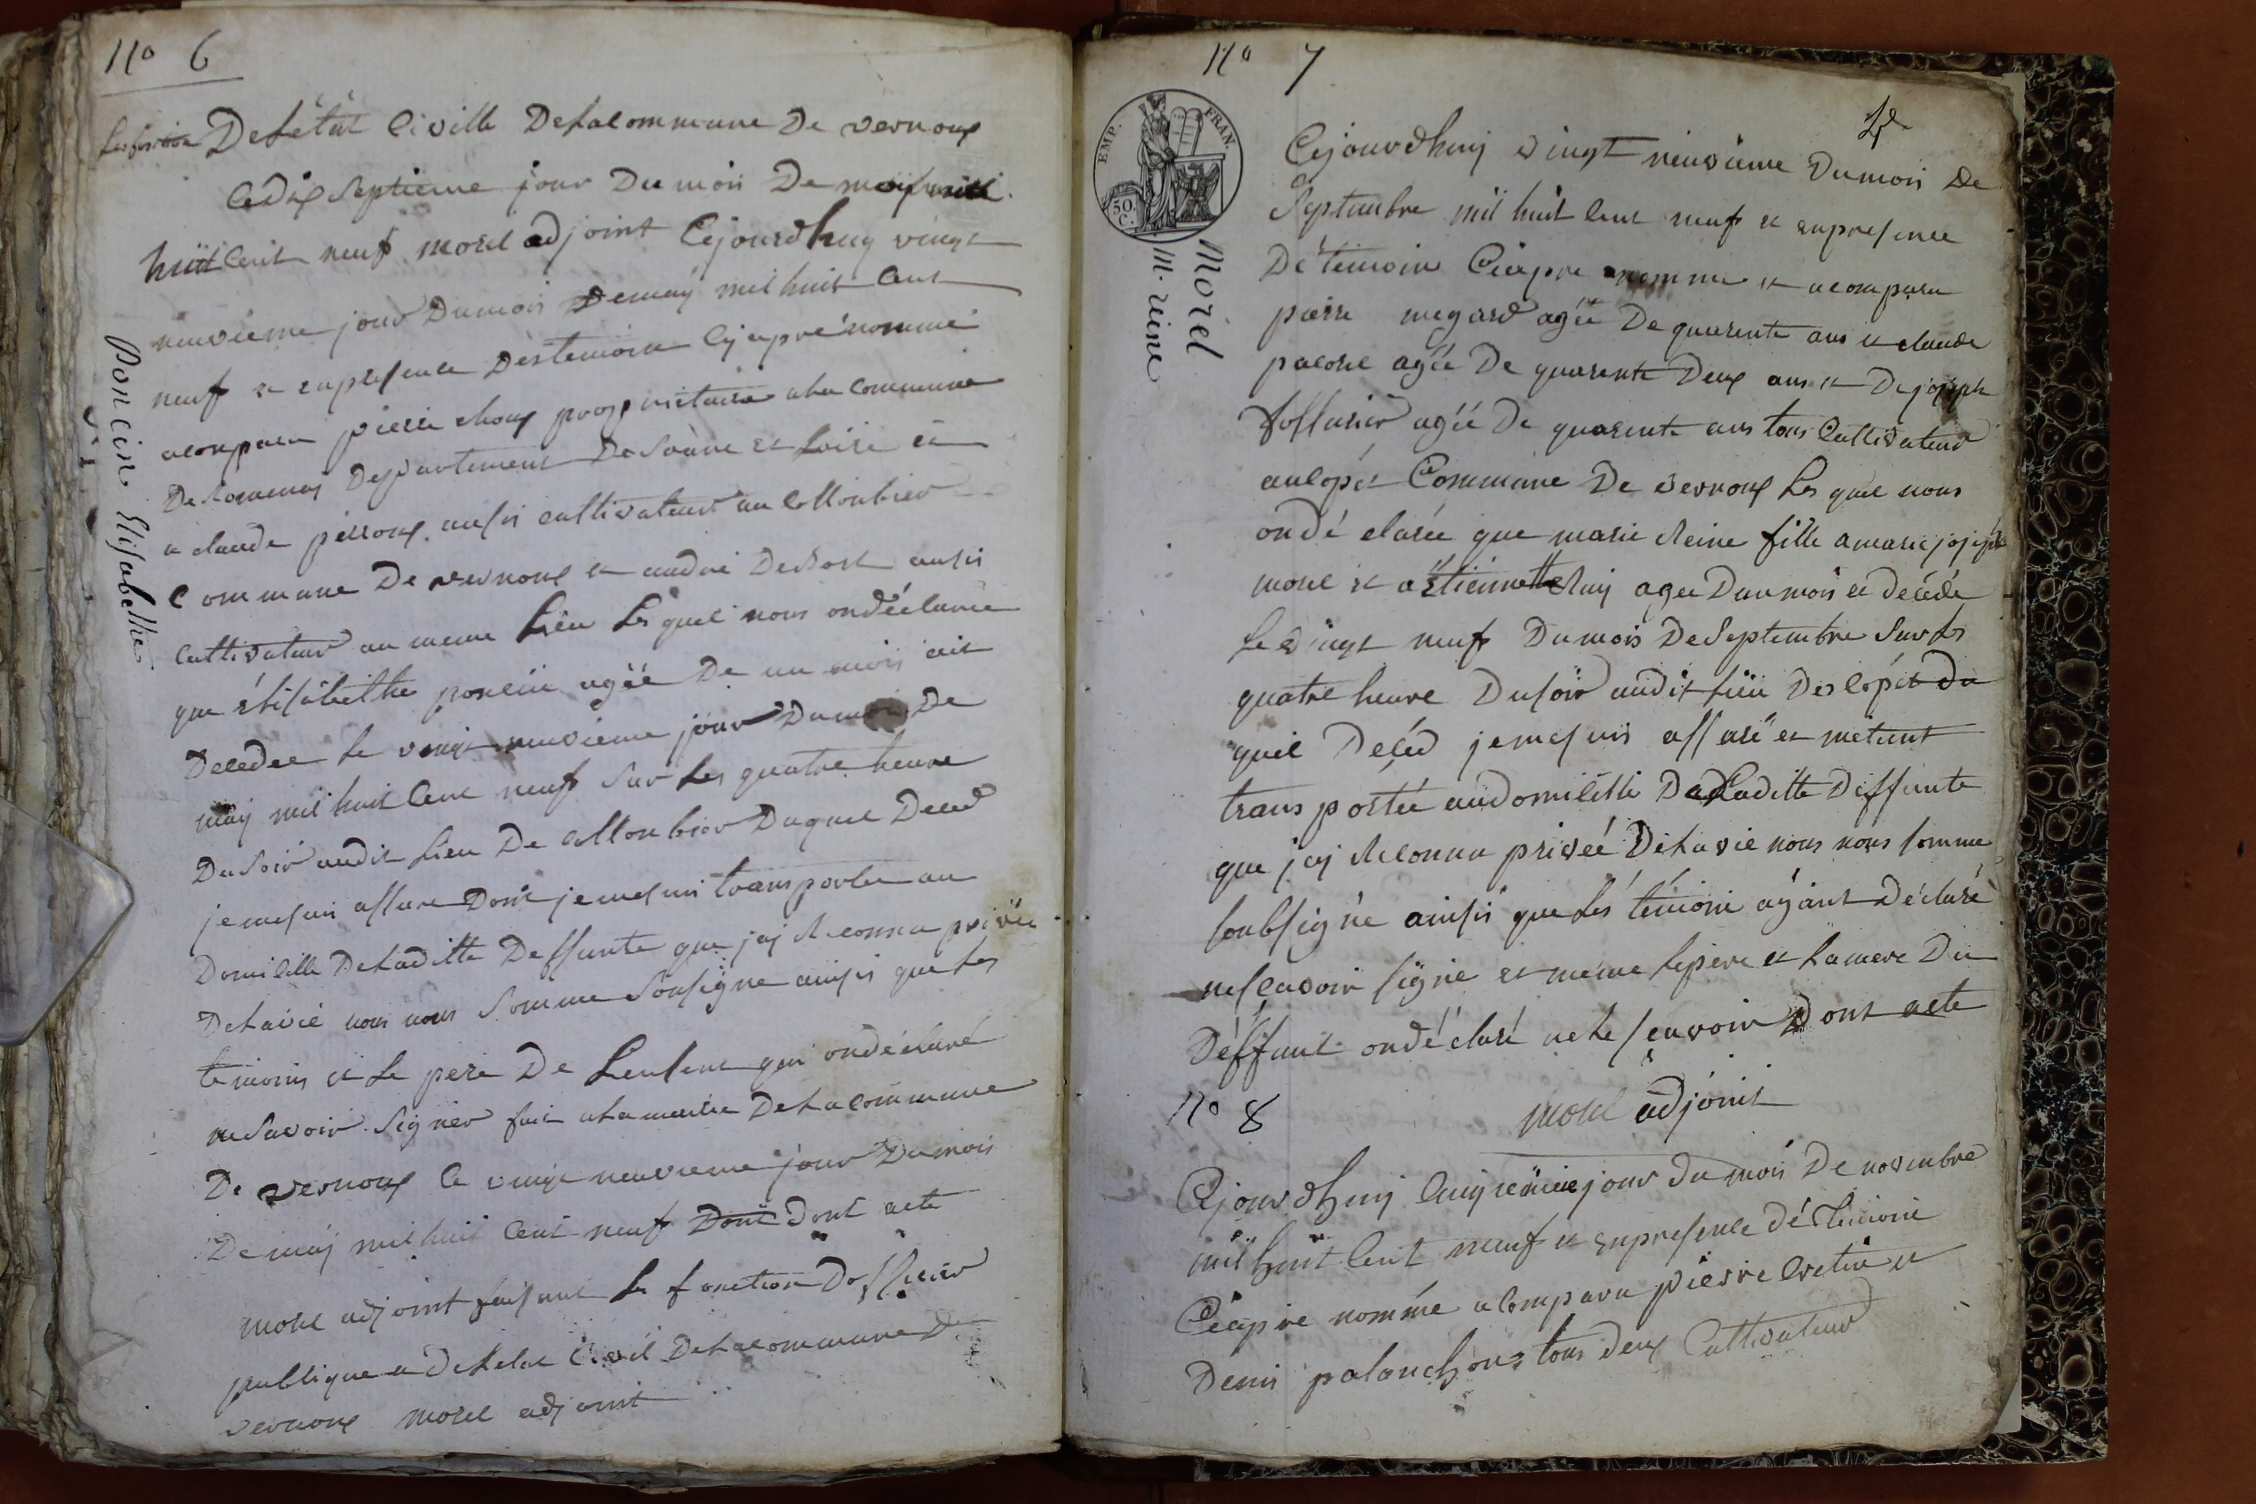 N° 6
De Létat Civille Delacommune De vernoux
Cedix Septieme jour Du mois De may mille
huit Cent neuf morel adjoint Cejourdhuy vingt
neuvieme jour Dumois Demay mil huit Cent
neuf et enpresence Destemoin Cyapré nommé
acomparu pierre choux propriettaire ala commune
De Romenay Departement De Saône et Loire et
a claude perroux aussi cultivateur au Collonbier
Commune De vernoux et andré Debost aussi
Cultivateur au meme Lieu Les quel nous ondéclaree
que élisabethe poncin agée De un mois ait
Decedee Le vingt neuvieme jour Dumois De
may mil huit Cent neuf Sur Les quatre heure
Du Soir audit Lieu De Collonbier Duquel Deced
jemesuis assure Dont jemesuis transportee au
Domicille Deladitte Deffunte que jaj Reconnu privée
Delavie nous nous Somme Sousigne ainsis que Les
temoins et Le pere De Lenfent qui ondéclaré
ne Savoir Signer fait alamerie Delacommune
De vernoux Ce vingt neuvieme jour Dumois
De may mil huit Cent neuf Dont Dont acte
morel adjoint faisant Les fonction Dofficier
publique et Deletat Civil Delacommune De
vernoux morel adjoint
Poncin Elisabethe
N° 7
EMP. FRAN.
50. C.
Morel
M. reine
Cejourdhuy vingt neuvieme Dumois De
Septembre mil huit Cent neuf et enpresence
De témoin Cieapre nomme et acomparu
pierre megard agée De quarente ans et claude
pacoret agée De quarente Deux ans et De joseph
agée De quarente ans tous Cultivateur
aulopés Commune De vernoux Les quel nous
ondé clarée que marie Reine fille amarie joseph
morel et a étiennette Ruy agee Dun mois et Décédé
Le vingt neuf Dumois De Septembre Sur Les
quatre heure Dusoir audit Lieu Des lopés Du
quel Décéd jemesuis assuré et métant
trans portée audomicille De Laditte Deffunte
que jaj Reconnu privéé Delavie nous nous Somme
soubsigné ainsis que Lés témoin ayant Déclaré
nesçavoir signé et même Lepere et Lamere Du
Déffunt ondéclaré nele sçavoir Dont acte
morel adjoint
N° 8
Cejourdhuy Cinquieme jour du mois De novembre
mil huit Cent neuf et enpresence dés témoin
Cieapre nommé acomparu pierre Cretin et
Denis palanchon tous deux Cultivateur